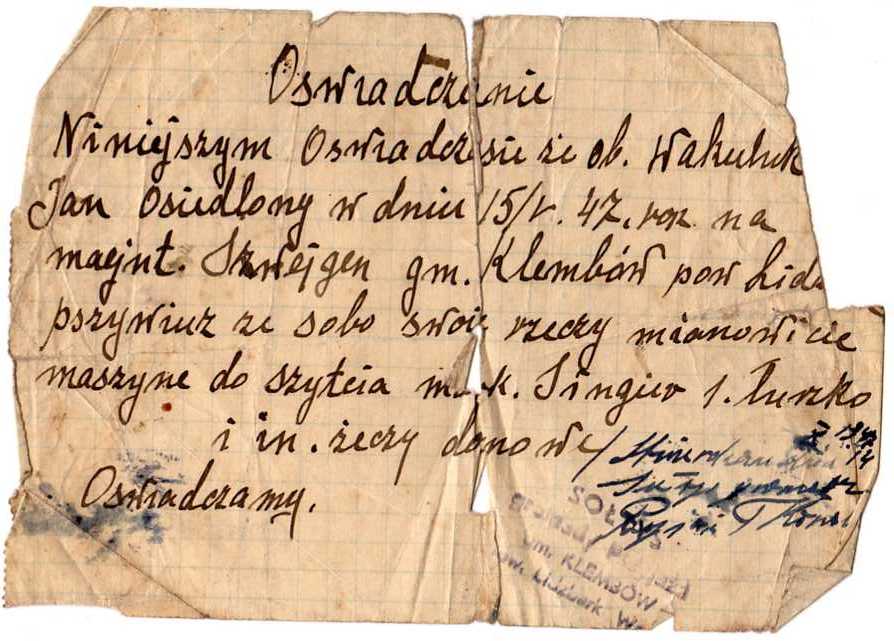 Oswiadczenie
Niniejszym Oswiadczesie że ob. Wakuluk
Jan Osiedlony w dniu 15/V. 47. rok na
majnt. Szwejgen gm. Klembów pow Lidz
pszywiuz ze sobo swoje rzeczy mianowicie
maszyne do szytcia mark. Singier 1. łuzko
i in. żeczy domowe/
Oswiadczamy.
SOŁTYS
Gromady
gm. KLEMBÓW
pow. Lidzbark W